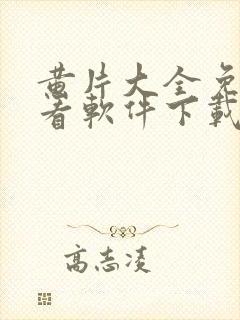 黄片大全免
看軟件下載
高志凌